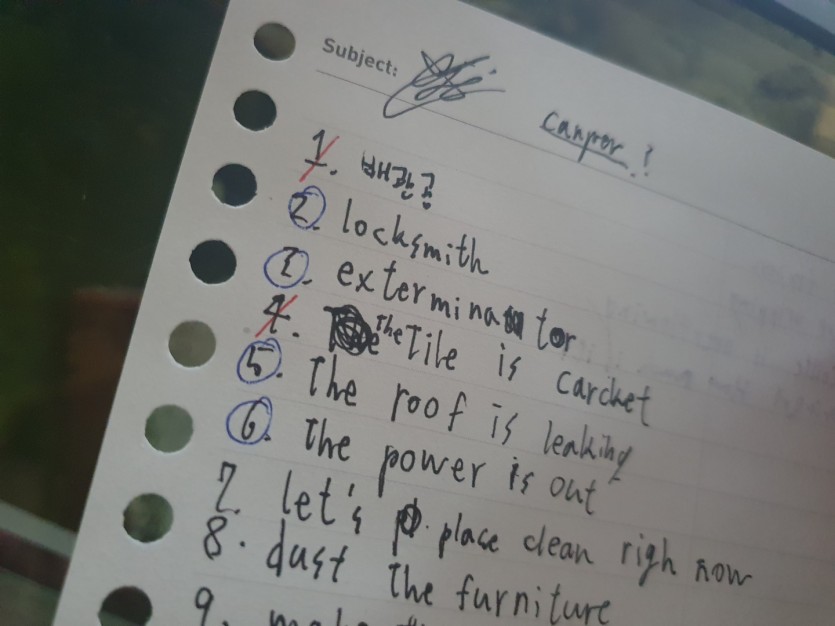 Subject:
Canpor!
1. 배관공
2. locksmith
3. exterminator
4. The Tile is carcket
5. The roof is leaking
6. The power is out
7. let's place clean righ now
8. dust the furniture
9.